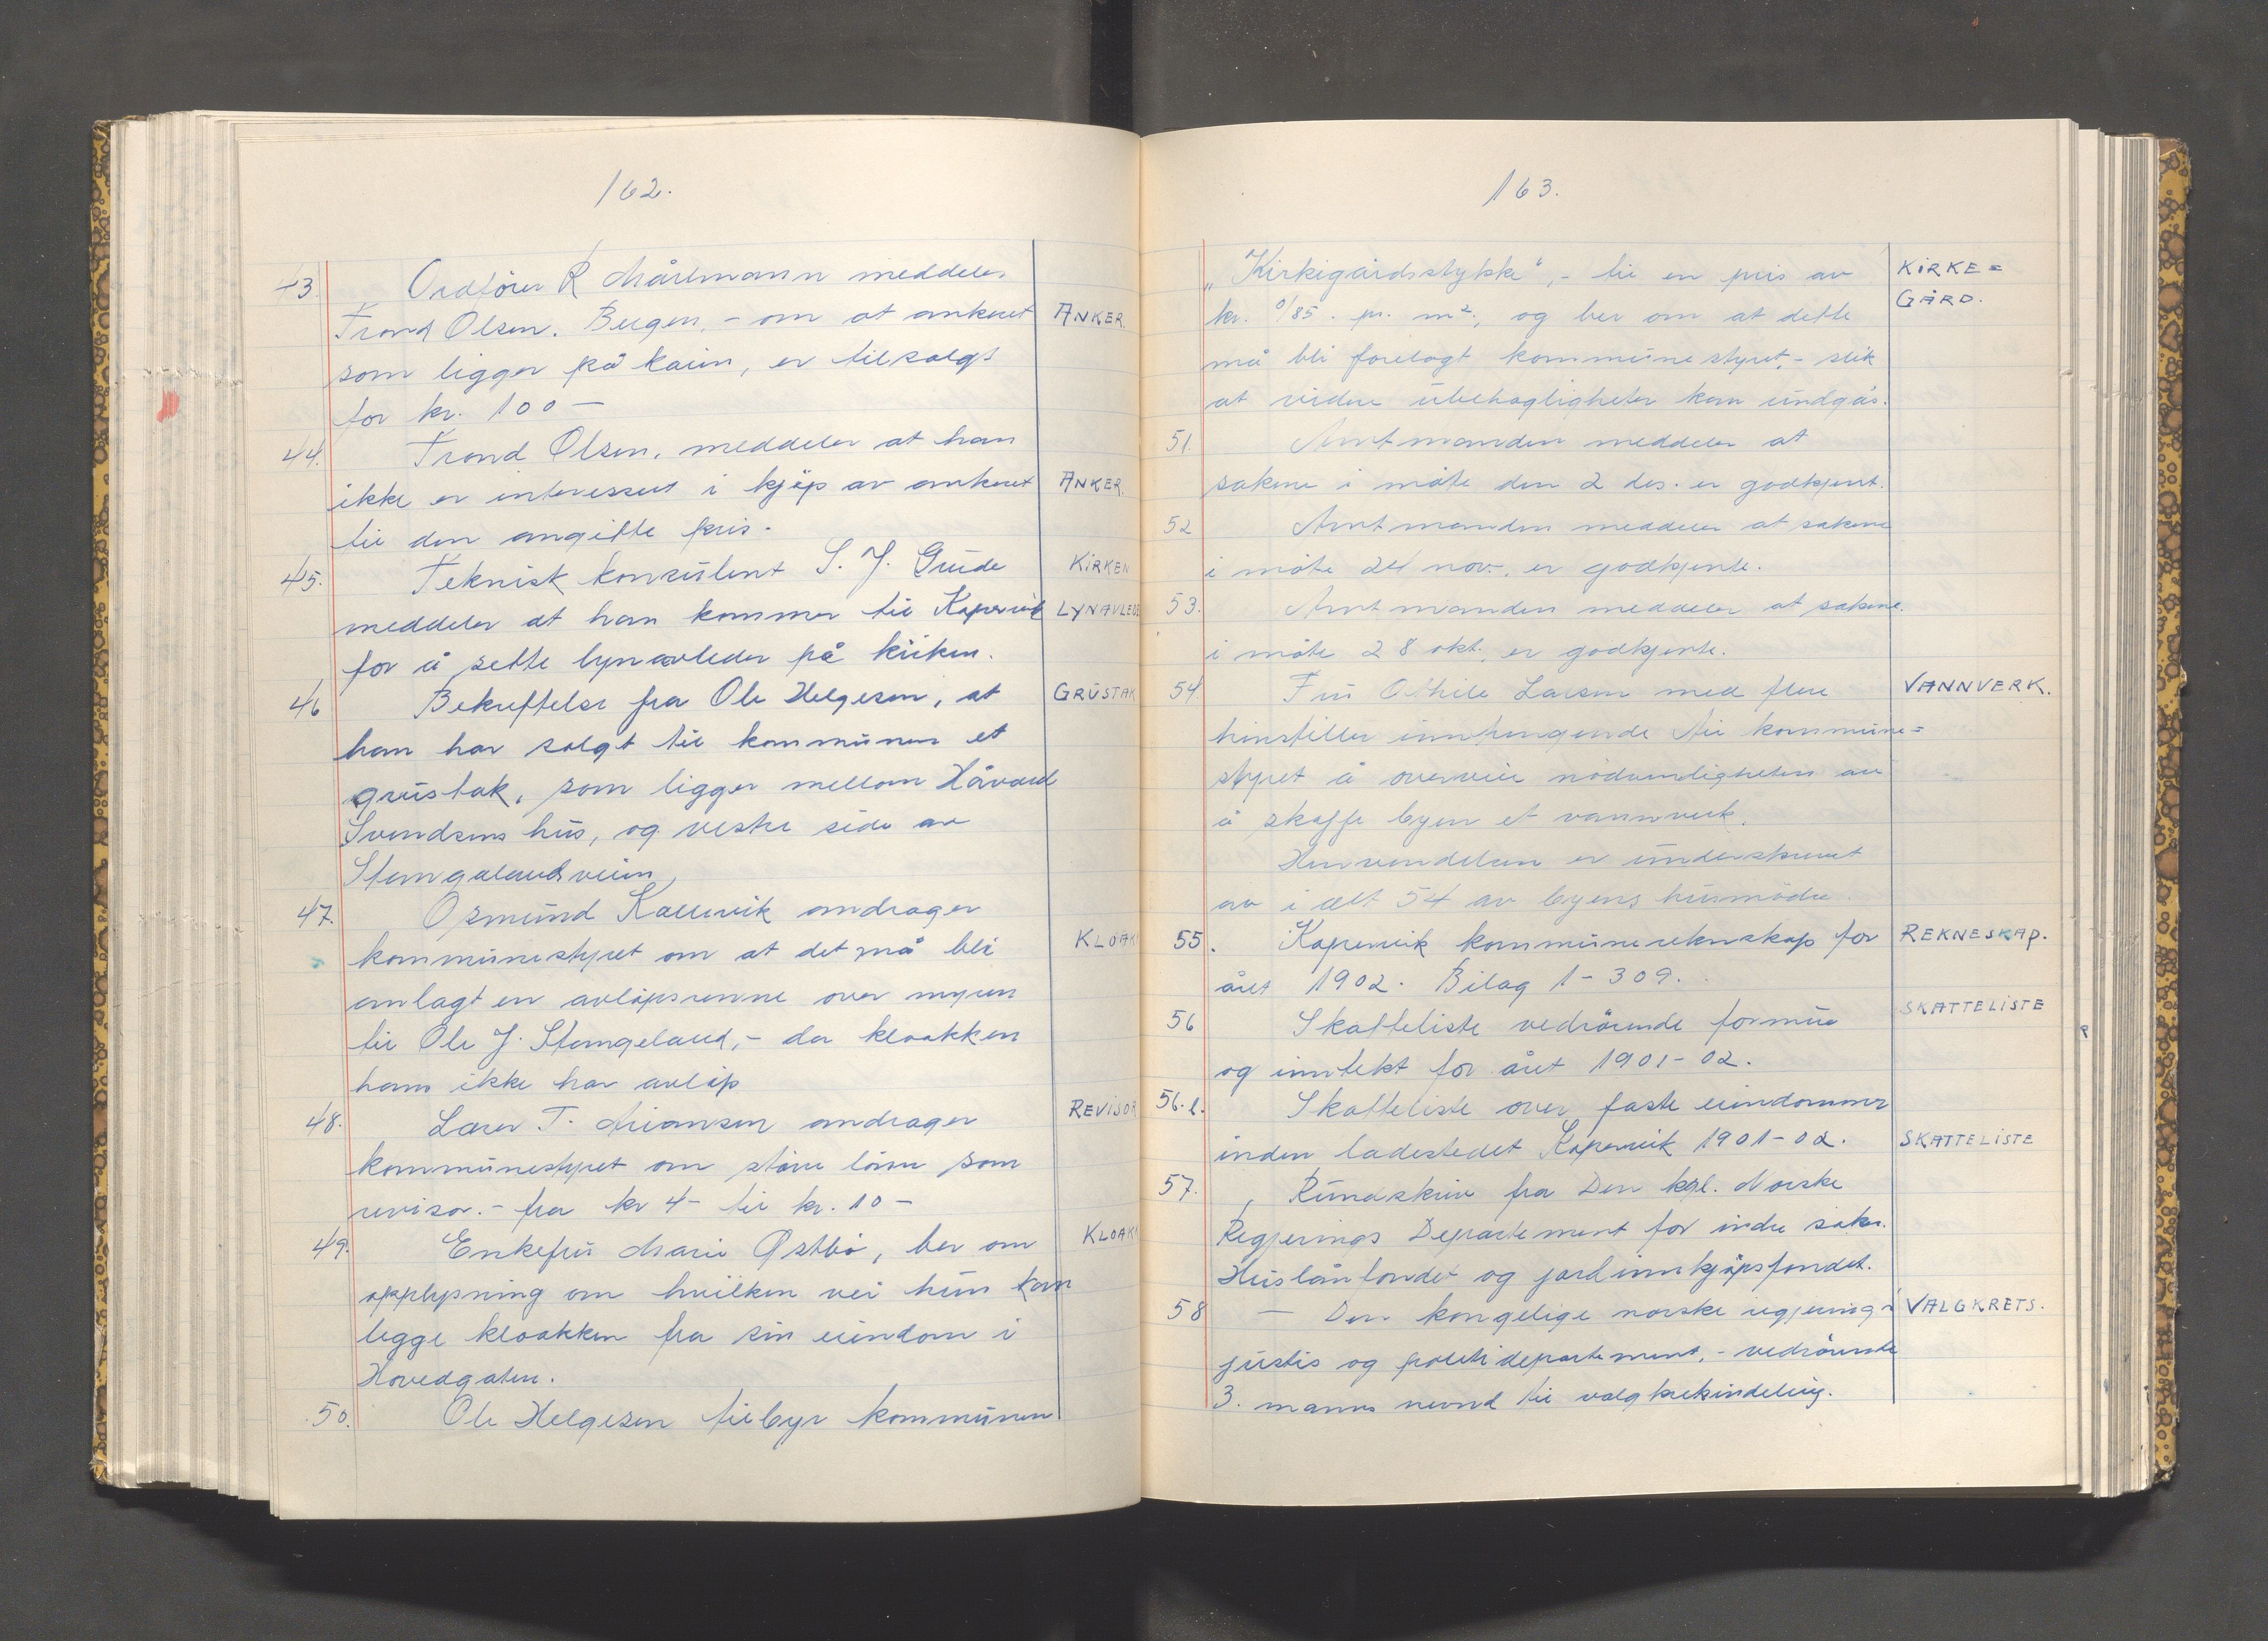 162.
43. Ordfører R Mårtmann meddeler
Trond Olsen. Bergen, - om at ankeret ANKER.
som ligger på kaien, er tilsalgs
for kr. 100 –
44. Trond Olsen, meddeler at han
ikke er interessert i kjøp av ankeret ANKER.
til den angitte pris.
45. Teknisk konsulent S. J. Gude KIRKEN
meddeler at han kommer til Kopervik LYNAVLEDE
for å sette lynavleder på kirken.
46 Bekreftelse fra Ole Helgesen, at GRUSTAK
han har solgt til kommunen et
grustak, som ligger mellom Håvard
Svendsens hus, og vestre side av
Stangelandsveien
47. Osmund Kallevik andrager
kommunestyret om at det må bli KLOAKK
anlagt en avløpsrenne over myren
til Ole J. Stangeland, - da kloakken
hans ikke har avløp
48. Lærer T. Miansen andrager REVISOR
kommunestyret om større lønn som
revisor. - fra kr 4- til kr. 10 –
49. Enkefru Marie Østbø, ber om KLOAKK
opplysning om hvilken vei hun kan
legge kloakken fra sin eiendom i
Hovedgaten.
50. Ole Helgesen tilbyr kommunen
163.
„Kirkigårdsstykke", - til en pris av KIRKE=
kr. 0/85. pr. m², og ber om at dette GÅRD.
må bli forelagt kommunestyret, - slik
at videre ubehagligheter kan undgås.
51. Amtmanden meddeler at
sakene i møte den 2 des. er godkjent.
52 Amtmanden meddeler at sakene
i møte 24 nov., er godkjente.
53. Amtmanden meddeler at sakene.
i møte 28 okt., er godkjente.
54. Fru Othile Larsen med flere VANNVERK.
henstiller inntrengende til kommune=
styret å overveie nødvendigheten av
å skaffe byen et vannverk.
Henvendelsen er underskrevet
av i alt 54 av byens husmødre.
55. Kopervik kommuneregnskap for REKNESKAP.
året 1902. Bilag 1 - 309.
56 Skatteliste vedrørende formue SKATTELISTE
og inntekt for året 1901 - 02.
56.b. Skatteliste over faste eiendommer
inden ladestedet Kopervik 1901-02. SKATTELISTE
57. Rundskriv fra Den kgl. Norske
Regjerings Departement for indre saker.
Huslånfondet og jordinnkjøpsfondet.
58 – Den kongelige norske regjerings VALGKRETS.
justis og politidepartement, - vedrørende
3. manns nevnd til valgkretsindeling.